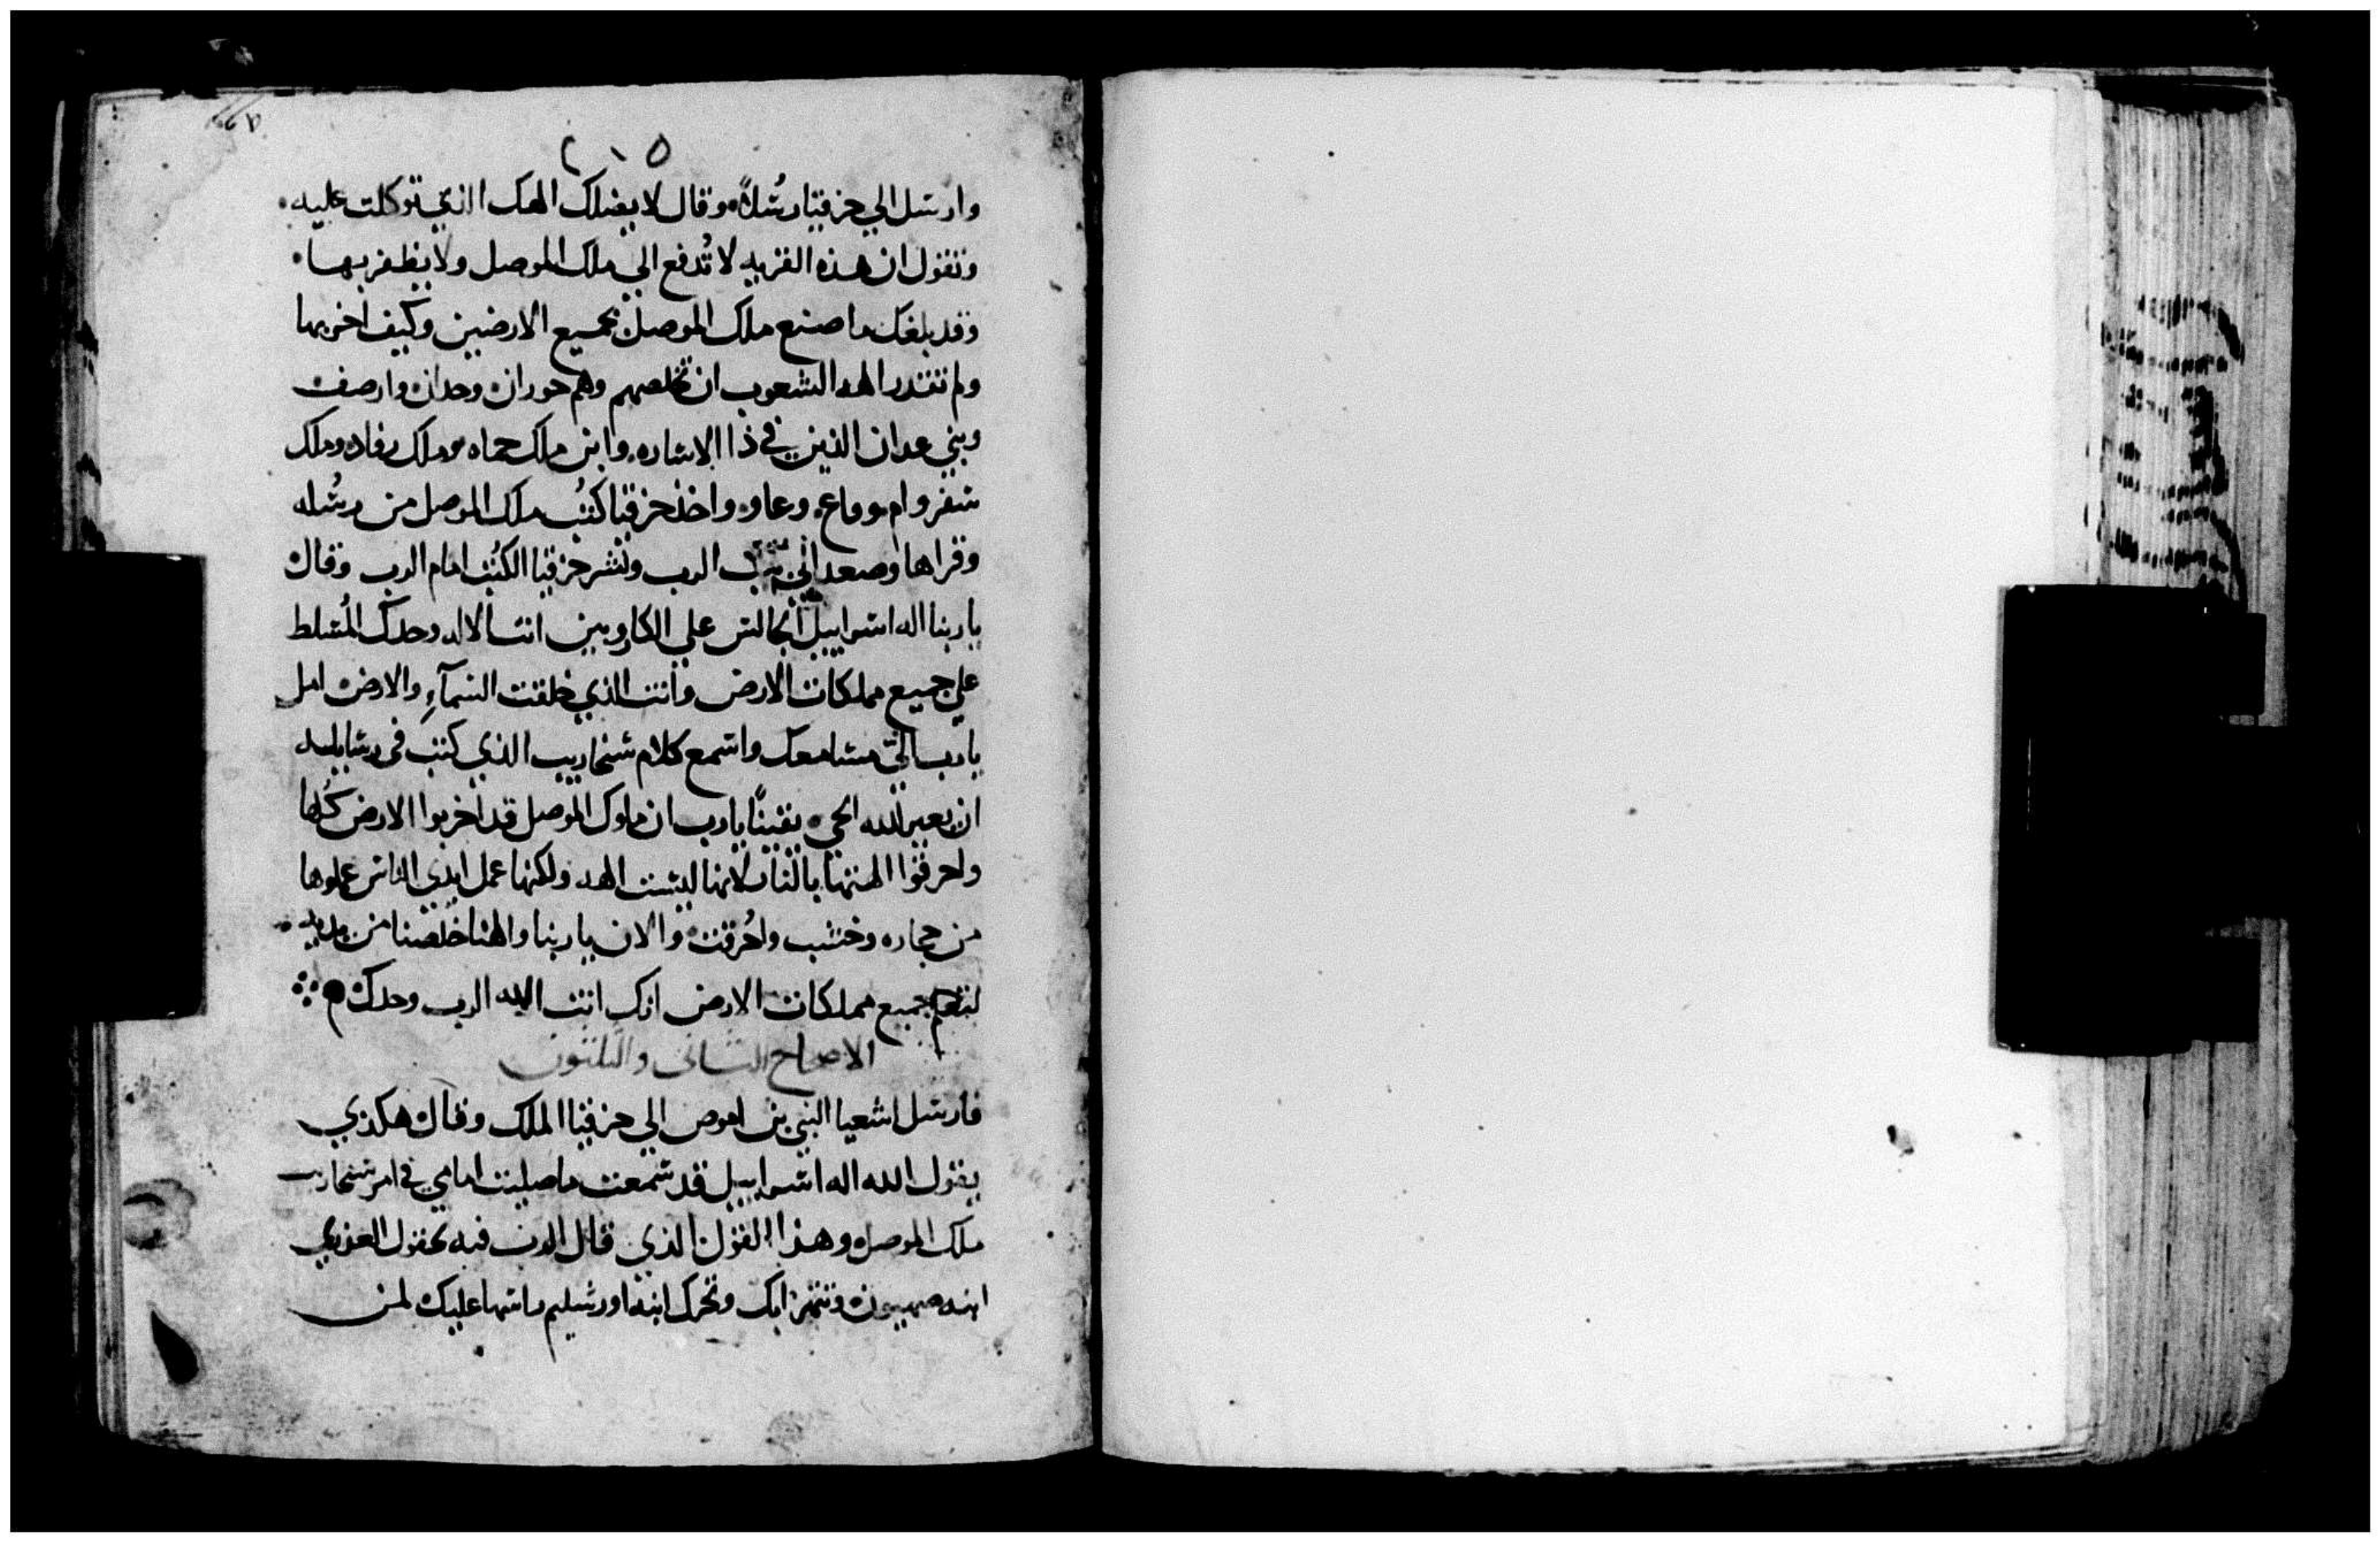 ٢١٥
وارسل الي حزقيا رسُلاً وقال لا يضلك الهك الذي توكلت عليه
وتقول ان هذه القريه لا تُدفع الي ملك الموصل ولا يظفر بها
وقد بلغك ما صنع ملك الموصل بجميع الارضين وكيف اخربها
ولم تقدر الهه الشعوب ان تخلصهم وهم حوران وحران وارصف
وبني عدان الذين في ذا الاشاره وابن ملك حماه وملك رفاد وملك
سفروام وعاوه واخذ حزقيا كتُب ملك الموصل من رسُله
وقراها وصعد الي بيت الرب ونشر حزقيا الكتُب امام الرب وقال
يا ربنا اله اسراييل الجالس علي الكاروبين انت الاله وحدك المُسلط
علي جميع مملكات الارض وانت الذي خلقت السمآءِ والارض امل
يا رب اليّ مسامعك واسمع كلام سنحاريب الذي كتب في رسايله
ان يعير الله الحي يقينًا يا رب ان ملوك الموصل قد اخربوا الارض كُلها
واحرقوا الهتها بالنار لانها ليست الهه ولكنها عمل ايدي الناس عملوها
من حجاره وخشب واحُرقت والان يا ربنا والهنا خلصنا من يديه
لتعلم جميع مملكات الارض انك انت الله الرب وحدك
الاصحاح الثانى والثلثون
فارسل اشعيا النبي بن اموص الي حزقيا الملك وقال هكذي
يقول الله اله اسراييل قد سمعت ما صليت امامي في امر سنحاريب
ملك الموصل وهذا القول الذي قال الرب فيه تحقول العذري
ابنه صهيون وتتهزا بك وتحرك ابنه اورشليم راسها عليك لمن